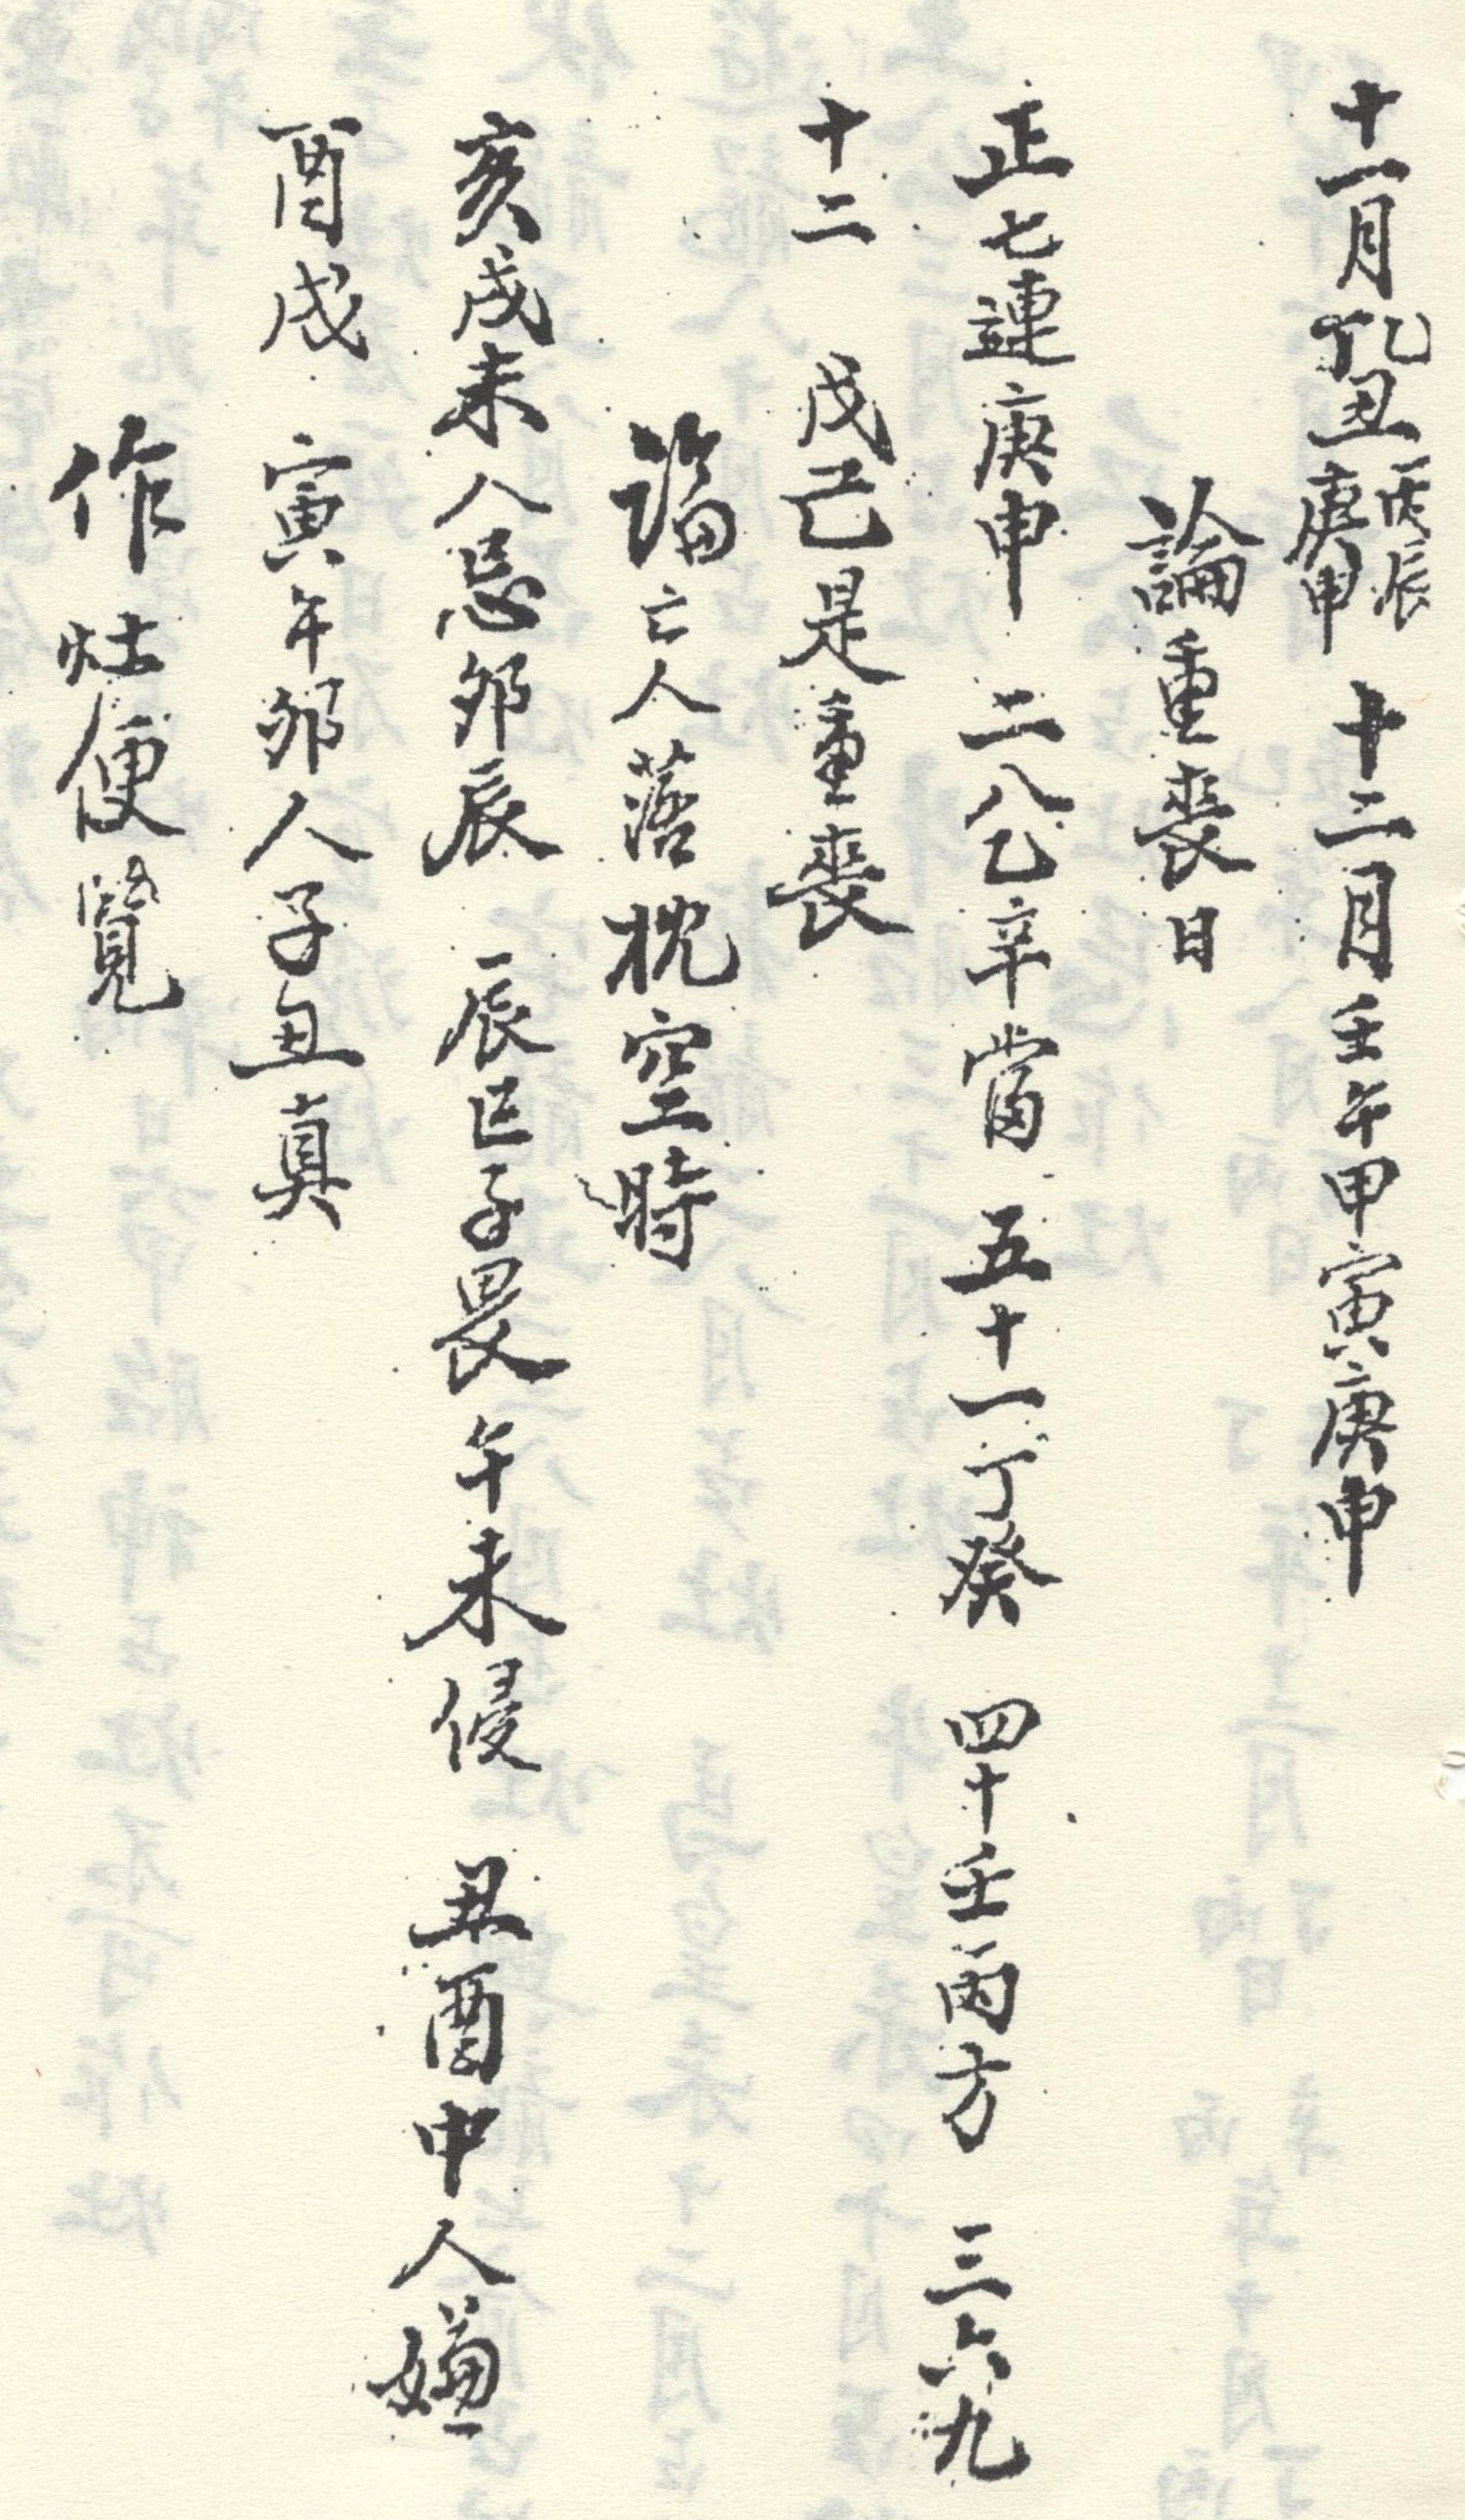 十一月乙丑丙辰庚申 十二月壬午甲寅庚申
論重喪日
正七連庚申 二八乙辛當 五十一丁癸 四十壬丙方 三六九
十二 戊己是重喪
論亡人落枕空時
亥戌未人忌卯辰 辰巳子畏午未侵 丑酉申人嫌
酉戌 寅午卯人子丑真
作灶便覽